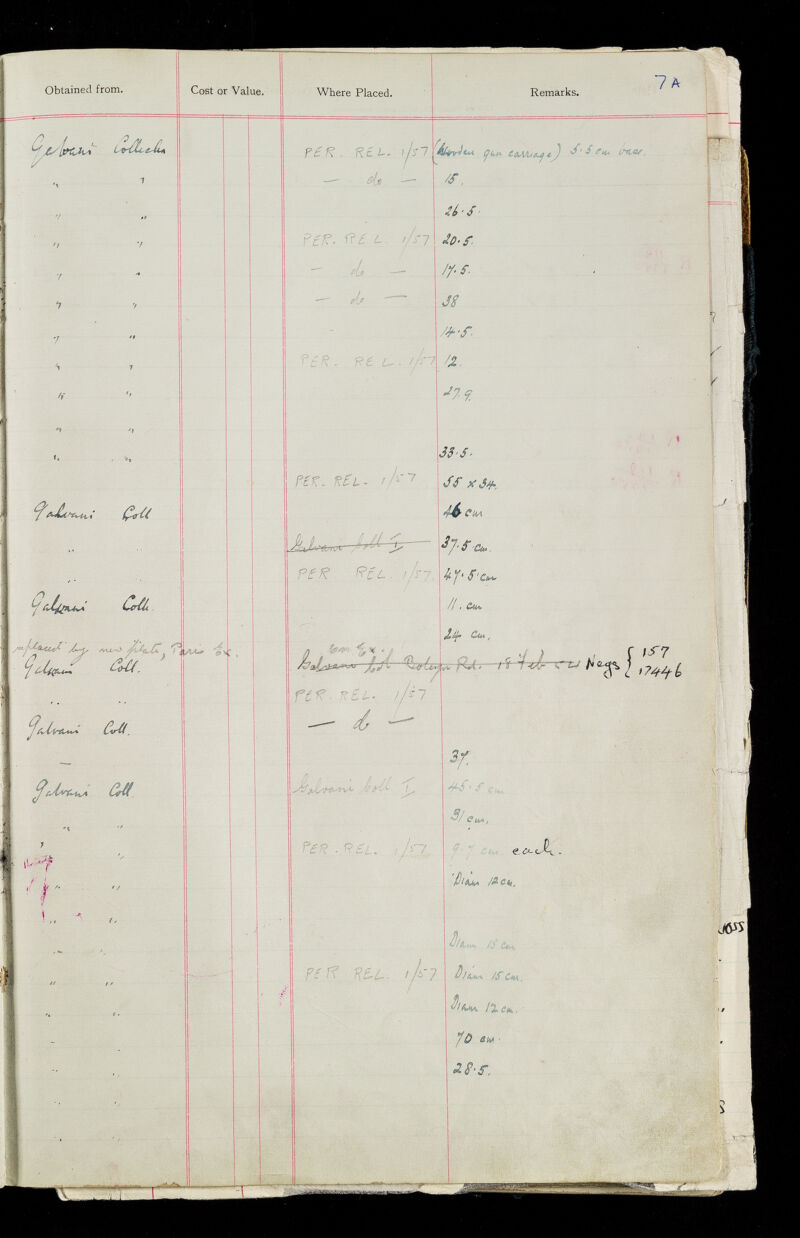 7A
Obtained from. Cost or Value. Where Placed. Remarks.
Galvani Collection PER. REL. 1/57 (Wooden gun carriage) 5.5 cm
" " — do — 15.
" " 26.5.
" " PER. REL. 1/57 20.5.
" " — do — 17.5.
" " — do — 38
" " 14.5.
" " PER. REL. 1/57 12.
" " 27.9.
" "
" " 33.5.
PER. REL. 1/57 55 x 34.
Galvani Coll 46 cm
" " Galvani Coll I 37.5 cm.
" " PER REL. 1/57 47.5 cm
Galvani Coll. 11. cm
24 cm.
replaced by new plate, Paris Ex. on Ex.
Galvani Coll. Galvani Coll Rd. 18 Feb Negs { 157
17446
" " PER. REL. 1/57
Galvani Coll. — do —
— 37.
Galvani Coll. Galvani Coll. I 45.5 cm
" " 31 cm.
" " PER. REL. 1/57 9.7 cm each.
" " Diam 12 cm.
" "
" " Diam 15 cm
" " PER REL. 1/57 Diam 15 cm.
" " Diam 12 cm.
" " 70 cm.
" " 28.5.
" "
" "